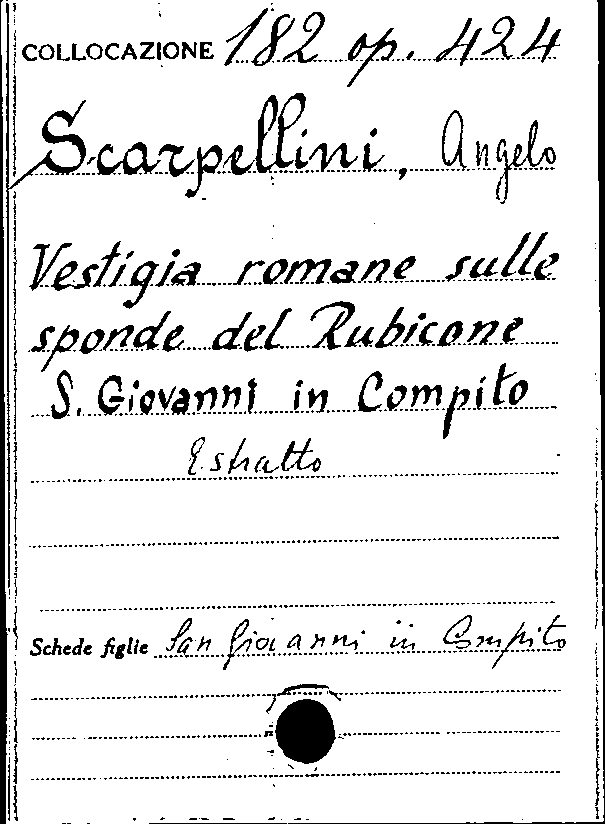 COLLOCAZIONE 182 op. 424
Scarpellini, Angelo
Vestigia romane sulle
sponde del Rubicone
S. Giovanni in Compito
Estratto
Schede figlie San Giovanni in Compito